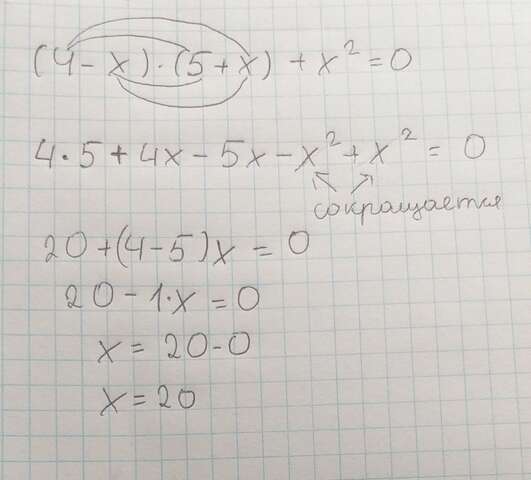 (4-x)·(5+x)+x²=0
4·5+4x-5x-x²+x²=0
сокращается
20+(4-5)x=0
20-1·x=0
x=20-0
x=20